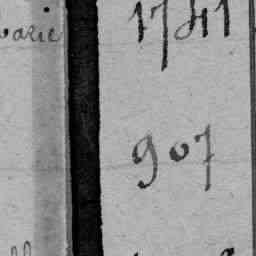 varie 1741
907